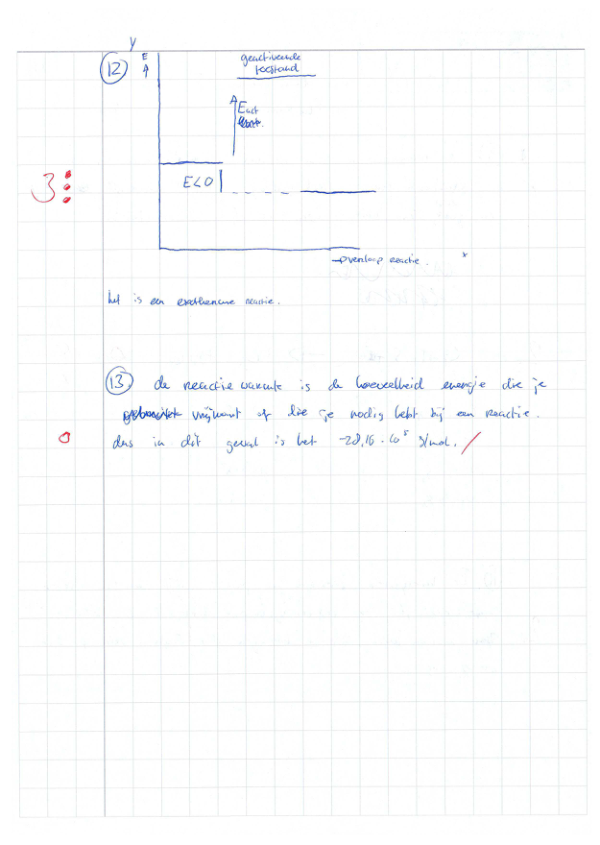 y
12 E geactiveerde
toestand
Eact
3
E<0
→ overloop reactie. x
het is een exotherme reactie.
13 de reactie warmte is de hoeveelheid energie die je
vrijkomt of die je nodig hebt bij een reactie.
0 dus in dit geval is het -28,16 · 10⁵ J/mol.